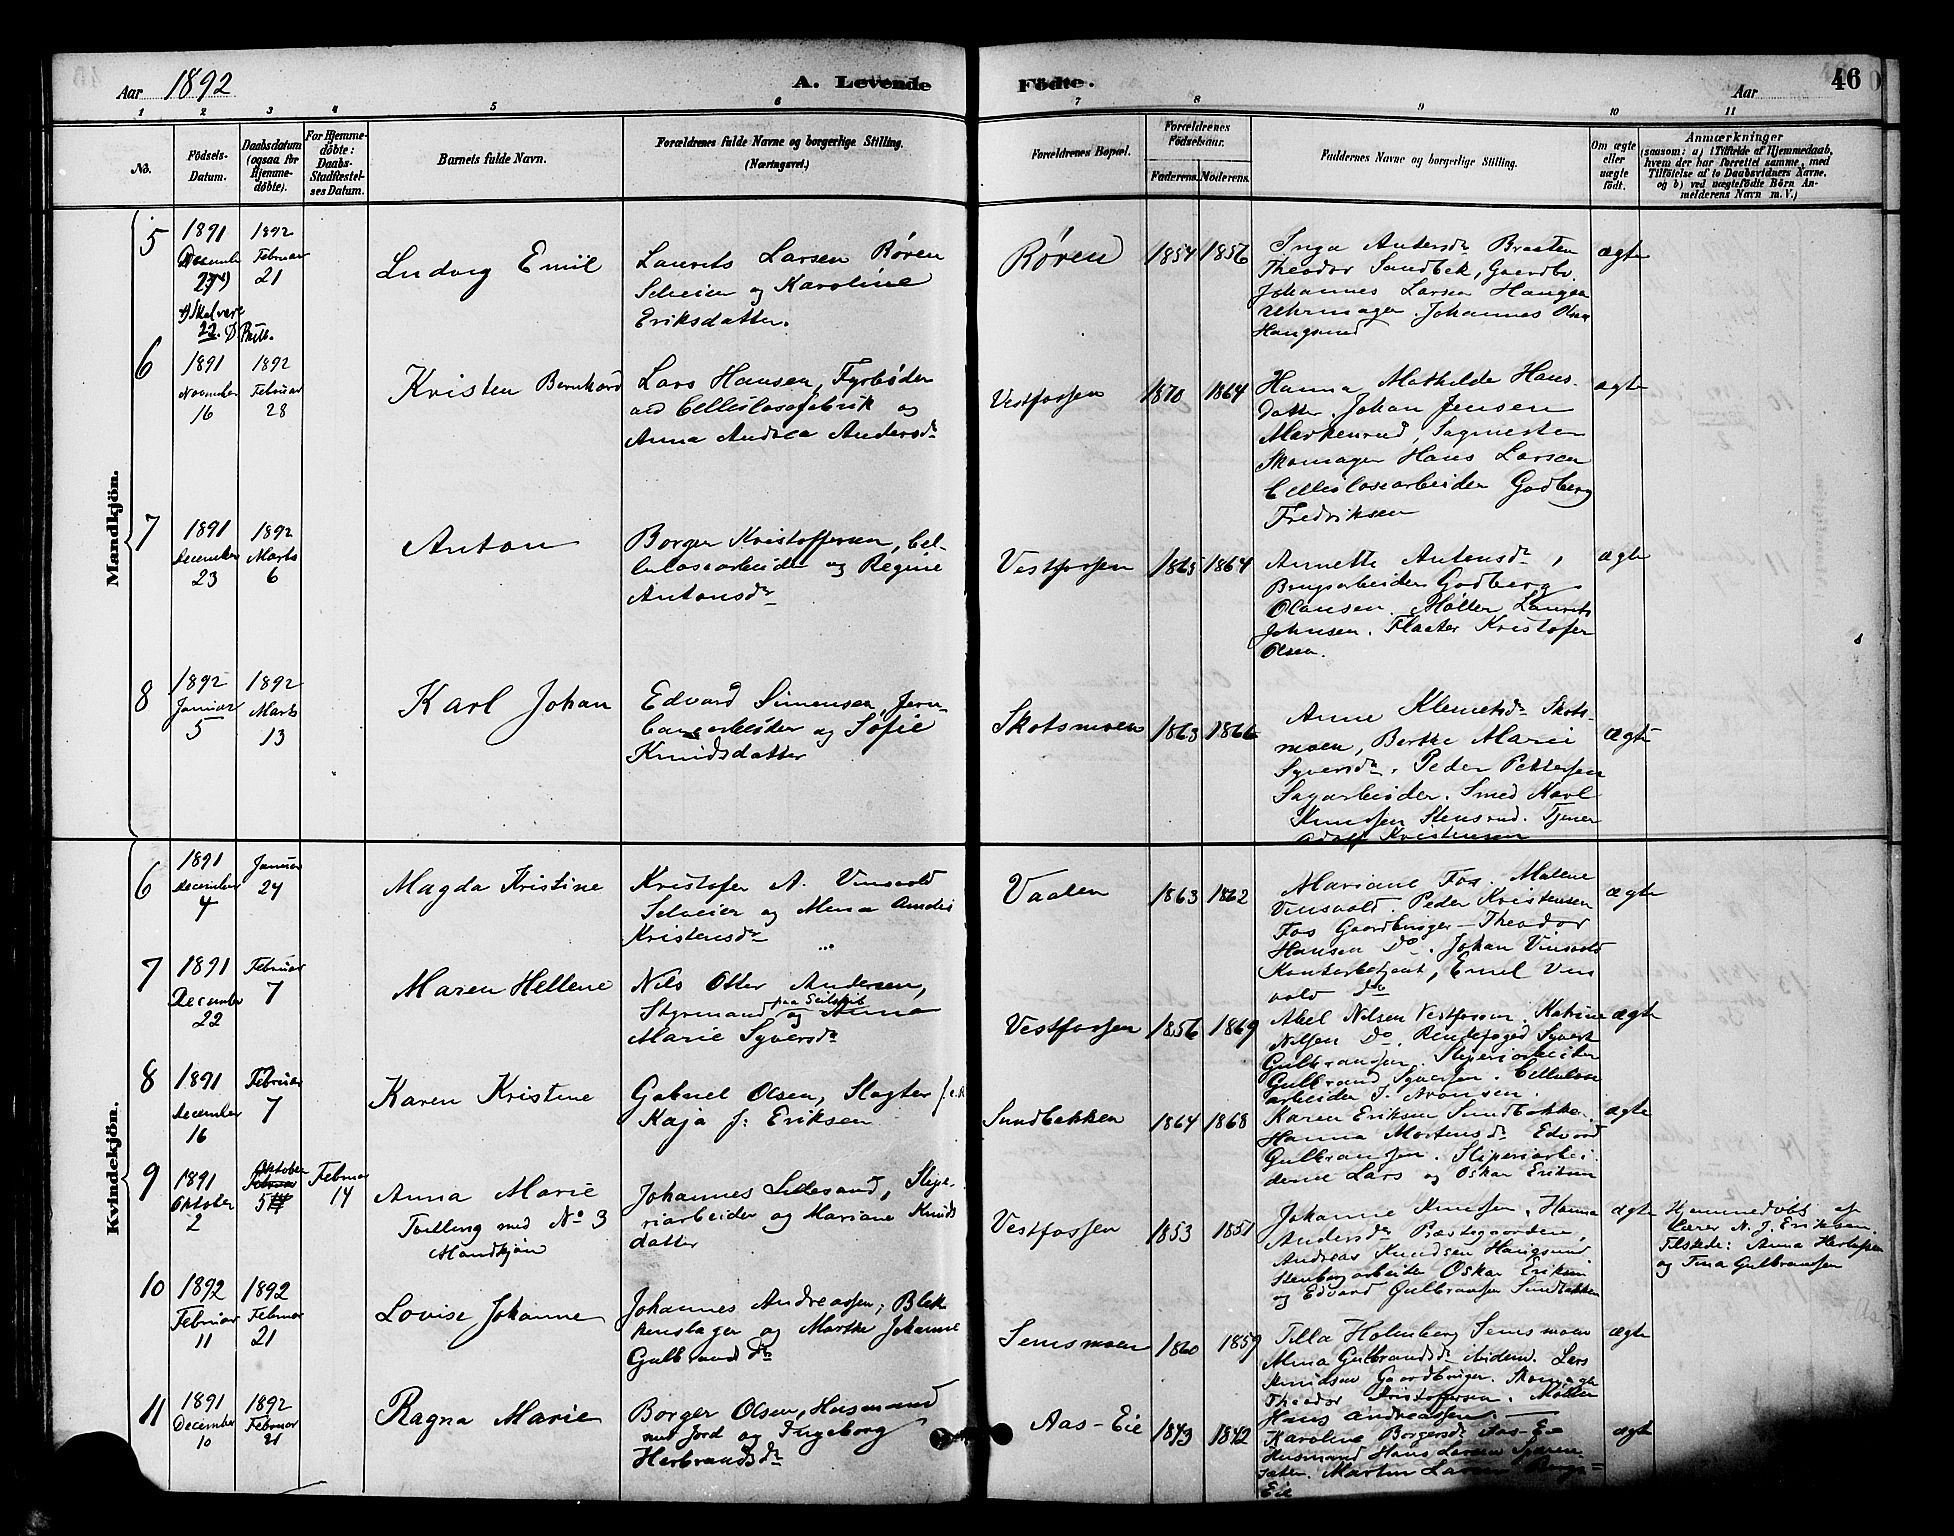 Aar 1892
A. Levende
Fødte.
Aar
46
1 2 3 4 5 6 7 8 9 10 11
No.
Fødsels-
Datum.
Daabsdatum
(ogsaa for
Hjemme-
døbte).
For Hjemme-
døbte:
Daabs-
Stadfæstel-
ses Datum.
Barnets fulde Navn.
Forældrenes fulde Navne og borgerlige Stilling.
(Næringsvei.)
Forældrenes Bopæl.
Forældrenes
Fødselsaar.
Faderens. Moderens.
Faddernes Navne og borgerlige Stilling.
Om ægte
eller
uægte
født.
Anmærkninger
(saasom: a) i Tilfælde af Hjemmedaab,
hvem der har forrettet samme, med
Tilføielse af to Daabsvidners Navne,
og b) ved uægtefødte Børn An-
melderens Navn m. V.)
Mandkjön.
5
1891
December
27
Skal være
22.
1892
Februar
21
Ludvig Emil
Laurits Larsen Røren
Selveier og Karoline
Eriksdatter.
Røren
1854 1856
Inga Andersdr Braaten
Theodor Sandbek, Gaardbr.
Johannes Larsen Haugen
Uhrmager. Johannes Olsen
Haugsund
ægte
6
1891
November
16
1892
Februar
28
Kristen Bernhard
Lars Hansen, Fyrbøder
ved Cellulosefabrik og
Anna Andrea Andersdr
Vestfossen
1870 1864
Hanna Mathilde Hans-
datter. Johan Jensen
Markenrud, Sagmester
Skomager Hans Larsen
Cellulosearbeider Godberg
Fredriksen
ægte
7
1891
December
23
1892
Marts
6
Anton
Borger Kristoffersen, Cel-
lulosearbeider og Regine
Antonsdr
Vestfossen
1865 1864
Annette Antonsdr,
Brugsarbeider Godberg
Olausen. Møller Laurits
Johnsen. Flaater Kristofer
Olsen.
ægte
8
1892
Januar
5
1892
Marts
13
Karl Johan
Edvard Simensen, Jern-
banearbeider og Sofie
Knudsdatter
Skotsmoen
1863 1866
Anne Klemetsdr Skots-
moen, Berthe Marie
Syversdr. Peder Pettersen
Sagarbeider. Smed Karl
Knudsen Stensrud. Tjener
Adolf Kristensen
ægte
Kvindekjön.
6
1891
December
4
Januar
24
Magda Kristine
Kristofer A. Vinsvold
Selveier og Mina
Kristensdr
Vaalen
1863 1862
Mariane Fos. Malene
Vinsvold. Peder Kristensen
Fos Gaardbruger - Theodor
Hansen Do. Johan Vinsvold
Kontorbetjent, Emil Vins
vold Do
ægte
7
1891
December
22
Februar
7
Maren Hellene
Nils Otter Andersen,
Styrmand paa Seilskib og Anne
Marie Syversdr
Vestfossen
1856 1869
Abel Nilsen Vestfossen. Katrine
Nilsen Do. Rendefoged Syvert
Gulbransen. Sliperiarbeider
Gulbrand Syversen. Cellulose
arbeider J. Aronsen.
ægte
8
1891
December
16
Februar
7
Karen Kristine
Gabriel Olsen, Slagter
Kaja J: Eriksen
Sundbakken
1864 1868
Karen Eriksen Sundbakken
Hanna Mortensdr Edvard
Gulbransen. Sliperiarbei-
derne Lars og Oskar Eriksen
ægte
9
1891
Oktober
2
Oktober
5
Februar
14
Anna Marie
Tvilling med No 3
Mandkjøn
Johannes Lillesand, Slipe-
riarbeider og Mariane Knuds
datter
Vestfossen
1853 1851
Johanne Knudsen. Hanna
Andersdr Præstegaarden,
Andreas Knudsen Haugsund
Stenbergarbeider Oskar Eriksen
og Edvard Gulbransen Sundbakken
ægte
Hjemmedøbt af
Lærer N. J. Eriksen
Tilstede: Anna
og Tina Gulbransen
10
1892
Februar
11
1892
Februar
21
Lovise Johanne
Johannes Andreassen, Blik
kenslager og Marthe Johanne
Gulbrandsdr
Semsmoen
1860 1859
Tilla Holmberg Semsmoen
Mina Gulbrandsdr ibidem. Lars
Knudsen Gaardbruger. Skomager
Theodor Kristoffersen. Møller
Hans Andreassen.
ægte
11
1891
December
10
1892
Februar
21
Ragna Marie
Borger Olsen, Husmand
med Jord og Ingeborg
Herbrandsdr
Aas-Eie
1843 1842
Karoline Borgersdr Aas-Eie
Husmand Hans Larsen
Martin Larsen
Eie
ægte